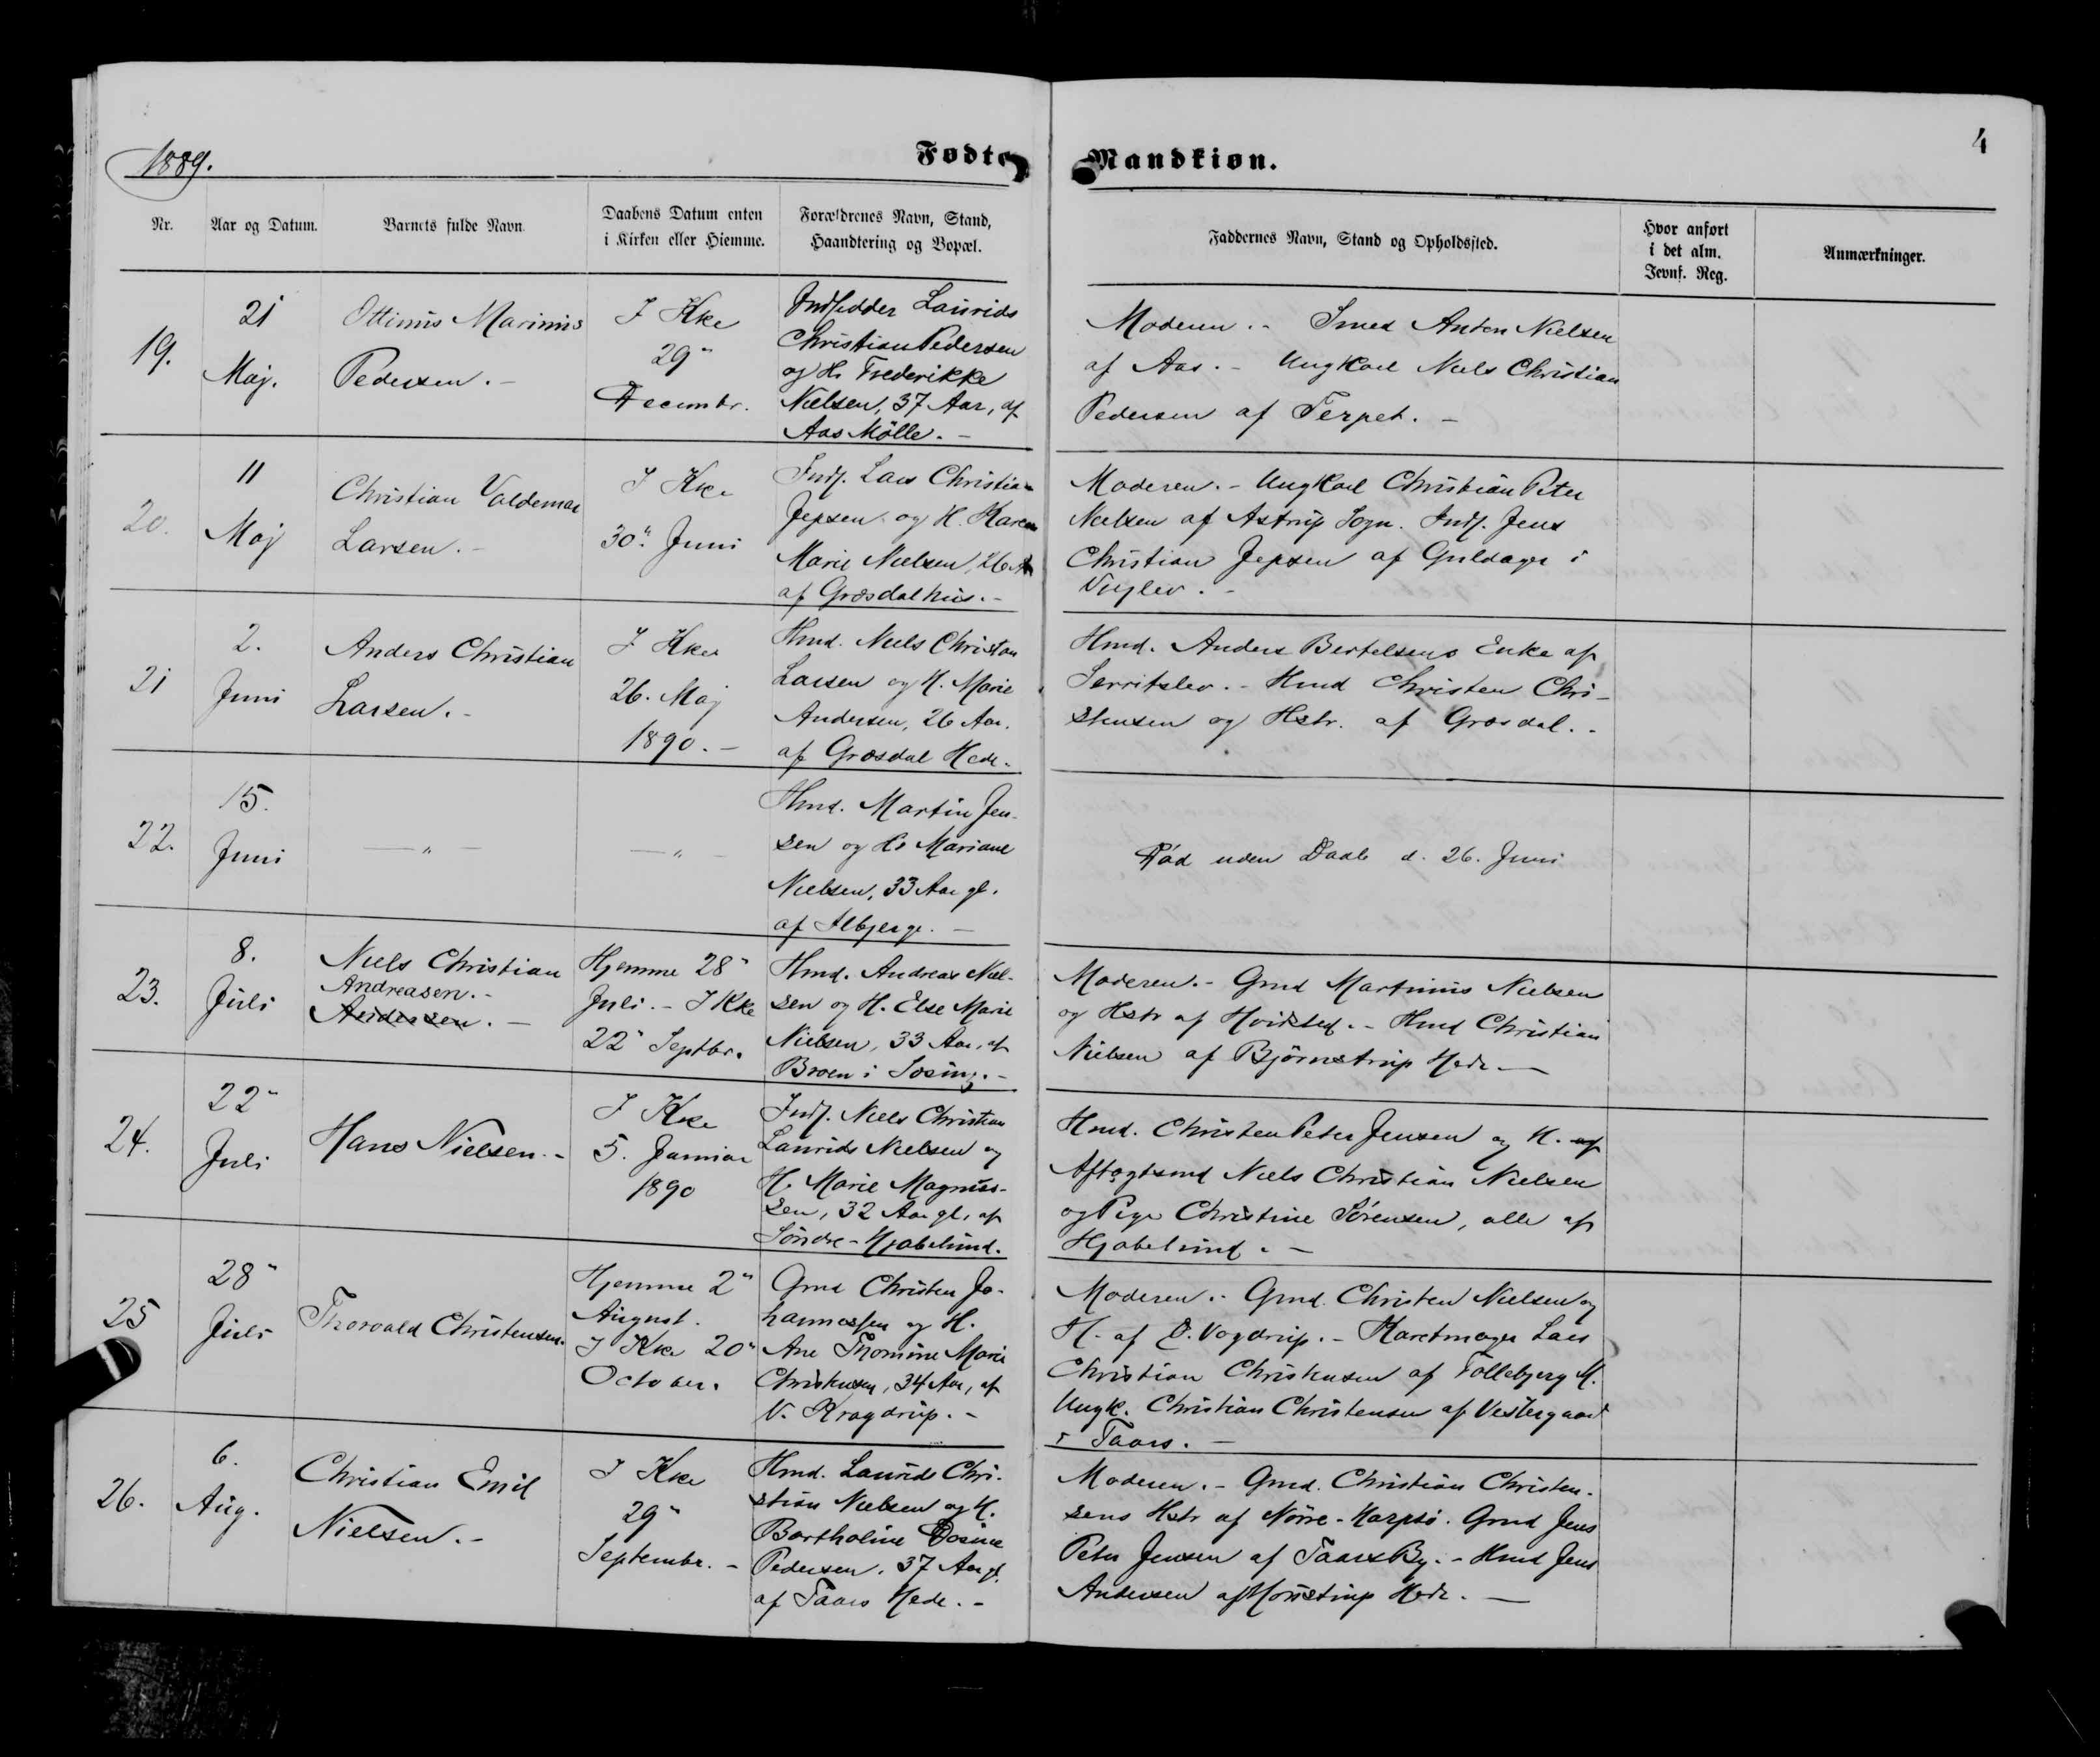 1889.
Fødte
Mandkiøn.
4
Nr.
Aar og Datum.
Barnets fulde Navn
Daabens Datum enten
i Kirken eller Hiemme.
Forældrenes Navn, Stand,
Haandtering og Bopæl.
Faddernes Navn, Stand og Opholdssted.
Hvor anført
i det alm.
Jevnf. Reg.
Anmærkninger.
19.
21
Maj.
Ottinus Marinus
Pedersen.-
I Kke
29"
Decembr.
Indsidder Laurids
Christian Pedersen
og H. Frederikke
Nielsen, 37 Aar, af
Aas Mølle.-
Moderen.- Smed Anton Nielsen
af Aas.- Ungkarl Niels Christian
Pedersen af Terpet.-
20.
11
Maj
Christian Valdemar
Larsen.-
I Kke
30" Juni
Inds. Lars Christian
Jepsen og H. Karen
Marie Nielsen, 26 Aar
af Græsdalhus.-
Moderen.- Ungkarl Christian Peter
Nielsen af Astrup Sogn. Inds. Jens
Christian Jepsen af Guldager i
Vuglev.-
21
2.
Juni
Anders Christian
Larsen.-
I Kke
26. Maj
1890.-
Hmd. Niels Christian
Larsen og H. Marie
Andersen, 26 Aar.
af Græsdal Hede.
Hmd. Anders Bertelsens Enke af
Serritslev.- Hmd Christen Chri-
stensen og Hstr. af Græsdal.-
22.
15.
Juni
— " —
— " —
Hmd. Martin Jen-
sen og H. Mariane
Nielsen, 33 Aar gl.
af Ilbjerge.-
Død uden Daab d. 26. Juni
23.
8.
Juli
Niels Christian
Andreasen.-
Andersen.-
Hjemme 28"
Juli.- I Kke
22" Septbr.
Hmd. Andreas Niel-
sen og H. Else Marie
Nielsen, 33 Aar, af
Broen i Sosing.-
Moderen.- Gmd Martinus Nielsen
og Hstr af Hvidsted.- Hmd Christian
Nielsen af Bjørnstrup Hede.—
24.
22"
Juli
Hans Nielsen.-
I Kke
5. Januar
1890
Inds. Niels Christian
Laurids Nielsen og
H. Marie Magnus-
sen, 32 Aar gl. af
Søndre-Hjabelund.
Hmd. Christen Peter Jensen og H. af
Aftægtsmd Niels Christian Nielsen
og Pige Christine Sørensen, alle af
Hjabelund.-
25
28"
Juli
Thorvald Christensen.
Hjemme 2"
August.
I Kke 20"
October.
Gmd Christen Jo-
hannessen og H.
Ane Thomine Marie
Christensen, 34 Aar, af
V. Kragdrup.-
Moderen.- Gmd. Christen Nielsen og
H. af Ø. Vogdrup.- Karetmager Lars
Christian Christensen af Tollebjerg M.
Ungk. Christian Christensen af Vestergaard
i Taars.-
26.
6.
Aug.
Christian Emil
Nielsen.-
I Kke
29"
Septembr.-
Hmd. Laurids Chri-
stian Nielsen og H.
Bartholine Dosine
Pedersen, 37 Aar gl.
af Taars Hede.-
Moderen.- Gmd. Christian Christen-
sens Hstr af Nørre-Harpsø. Gmd Jens
Peter Jensen af Taars By.- Hmd Jens
Andersen af Horstrup Hede.—